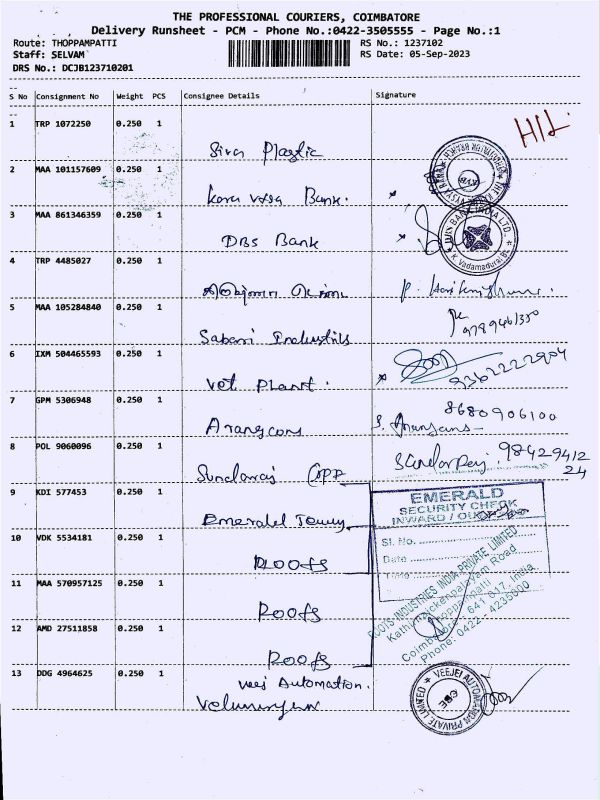 THE PROFESSIONAL COURIERS, COIMBATORE
Delivery Runsheet - PCM - Phone No.:0422-3505555 - Page No.:1
Route: THOPPAMPATTI
RS No.: 1237102
Staff: SELVAM
RS Date: 05-Sep-2023
DRS No.: DCJB123710201
S No Consignment No Weight PCS Consignee Details Signature
1 TRP 1072250 0.250 1
Siva Plastic
2 MAA 101157609 0.250 1
Bank.
3 MAA 861346359 0.250 1
DBS Bank
4 TRP 4485027 0.250 1
5 MAA 105284840 0.250 1
Sabari
6 IXM 504465593 0.250 1
9362222904
Vet Plant.
7 GPM 5306948 0.250 1
8680906100
8 POL 9060096 0.250 1
9842941224
9 KDI 577453 0.250 1
EMERALD
SECURITY CHECK
INWARD / OUTWARD
Emerald
10 VDK 5534181 0.250 1
Sl. No.
Date
Time
Roofs
11 MAA 570957125 0.250 1
ROOTS INDUSTRIES INDIA PRIVATE LIMITED
Thoppampatti
Coimbatore - 641 017. India.
Phone: 0422 - 4235600
Roofs
12 AMD 27511858 0.250 1
Roofs
13 DDG 4964625 0.250 1
Veej Automation.
VEEJEI AUTOMATION
PRIVATE LIMITED